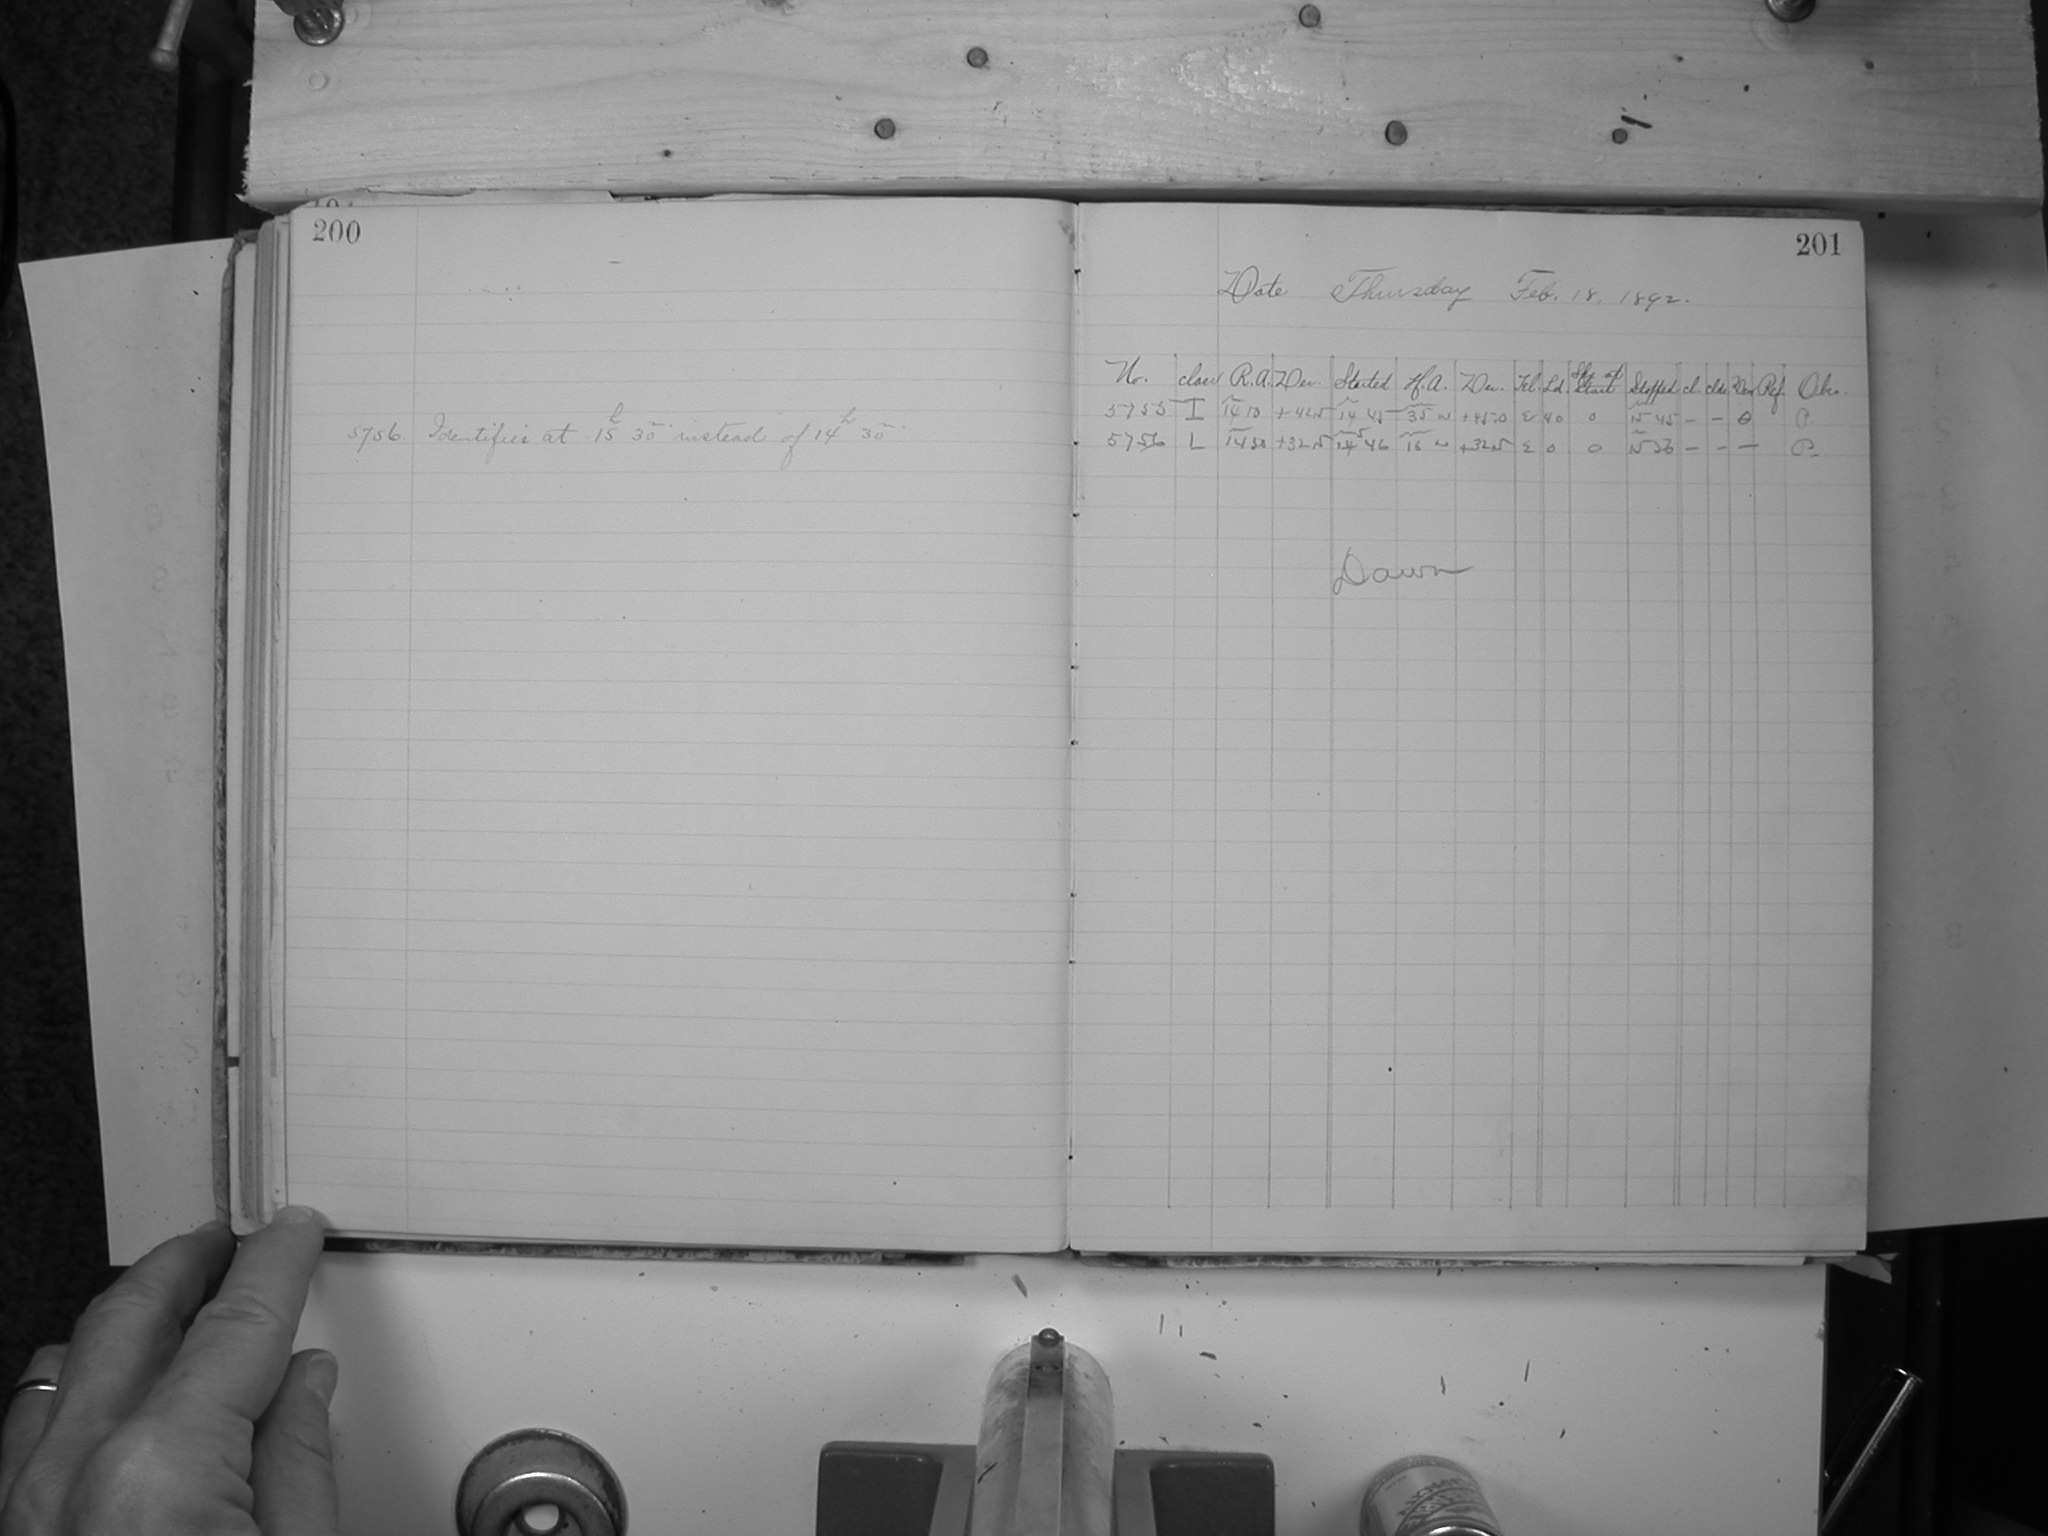 200
5756. Identifies at 15h 30 instead of 14h 30
201
Date Thursday Feb. 18, 1892.
No. class R.A. Dec. Started H.A. Dec. Tel. Ld. Sky at Start Stopped cl. clss Dev Ref. Obs.
5755 I 14 10 14 45 35 w 40 0 15 45 - - P.
5756 L 14 30 16 w 0 0 - - - P.
Dawn